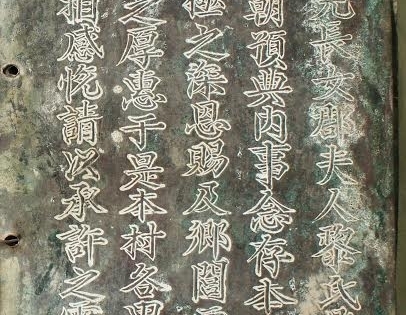 長女郡夫人黎氏
朝預典内事念存本
極之深恩賜及鄉閭
之厚惠于是本村各男
感悅請以承許之